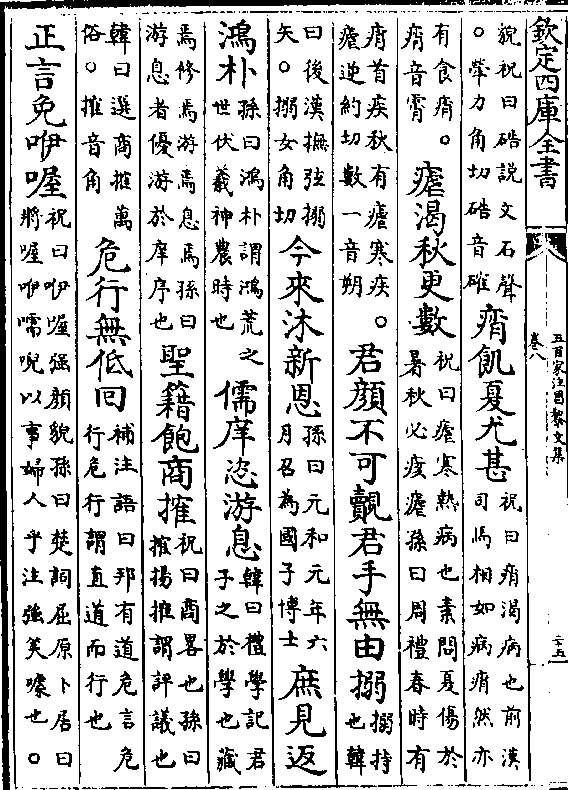 欽定四庫全書
五百家注昌黎文集
卷八
二十五
貌祝曰硞說文石聲
。犖力角切硞音確
痟飢夏尤甚
祝曰痟渴病也前漢
司馬相如病痟然亦
有食痟。
痟音宵
瘧渴秋更數
祝曰瘧寒熱病也素問夏傷於
暑秋必痎瘧孫曰周禮春時有
痟首疾秋有瘧寒疾。
瘧逆約切數一音朔
君顏不可覿君手無由搦
搦持
也韓
曰後漢撫弦搦
矣。搦女角切
今來沐新恩
孫曰元和元年六
月召為國子博士
庶見返
鴻朴
孫曰鴻朴謂鴻荒之
世伏羲神農時也
儒庠恣游息
韓曰禮學記君
子之於學也藏
焉修焉游焉息焉孫曰
游息者優游於庠序也
聖籍飽商搉
祝曰商畧也孫曰
搉揚搉謂評議也
韓曰選商搉萬
俗。搉音角
危行無低回
補注語曰邦有道危言危
行危行謂直道而行也
正言免咿喔
祝曰咿喔强顏貌孫曰楚詞屈原卜居曰
將喔咿嚅唲以事婦人乎注强笑噱也。